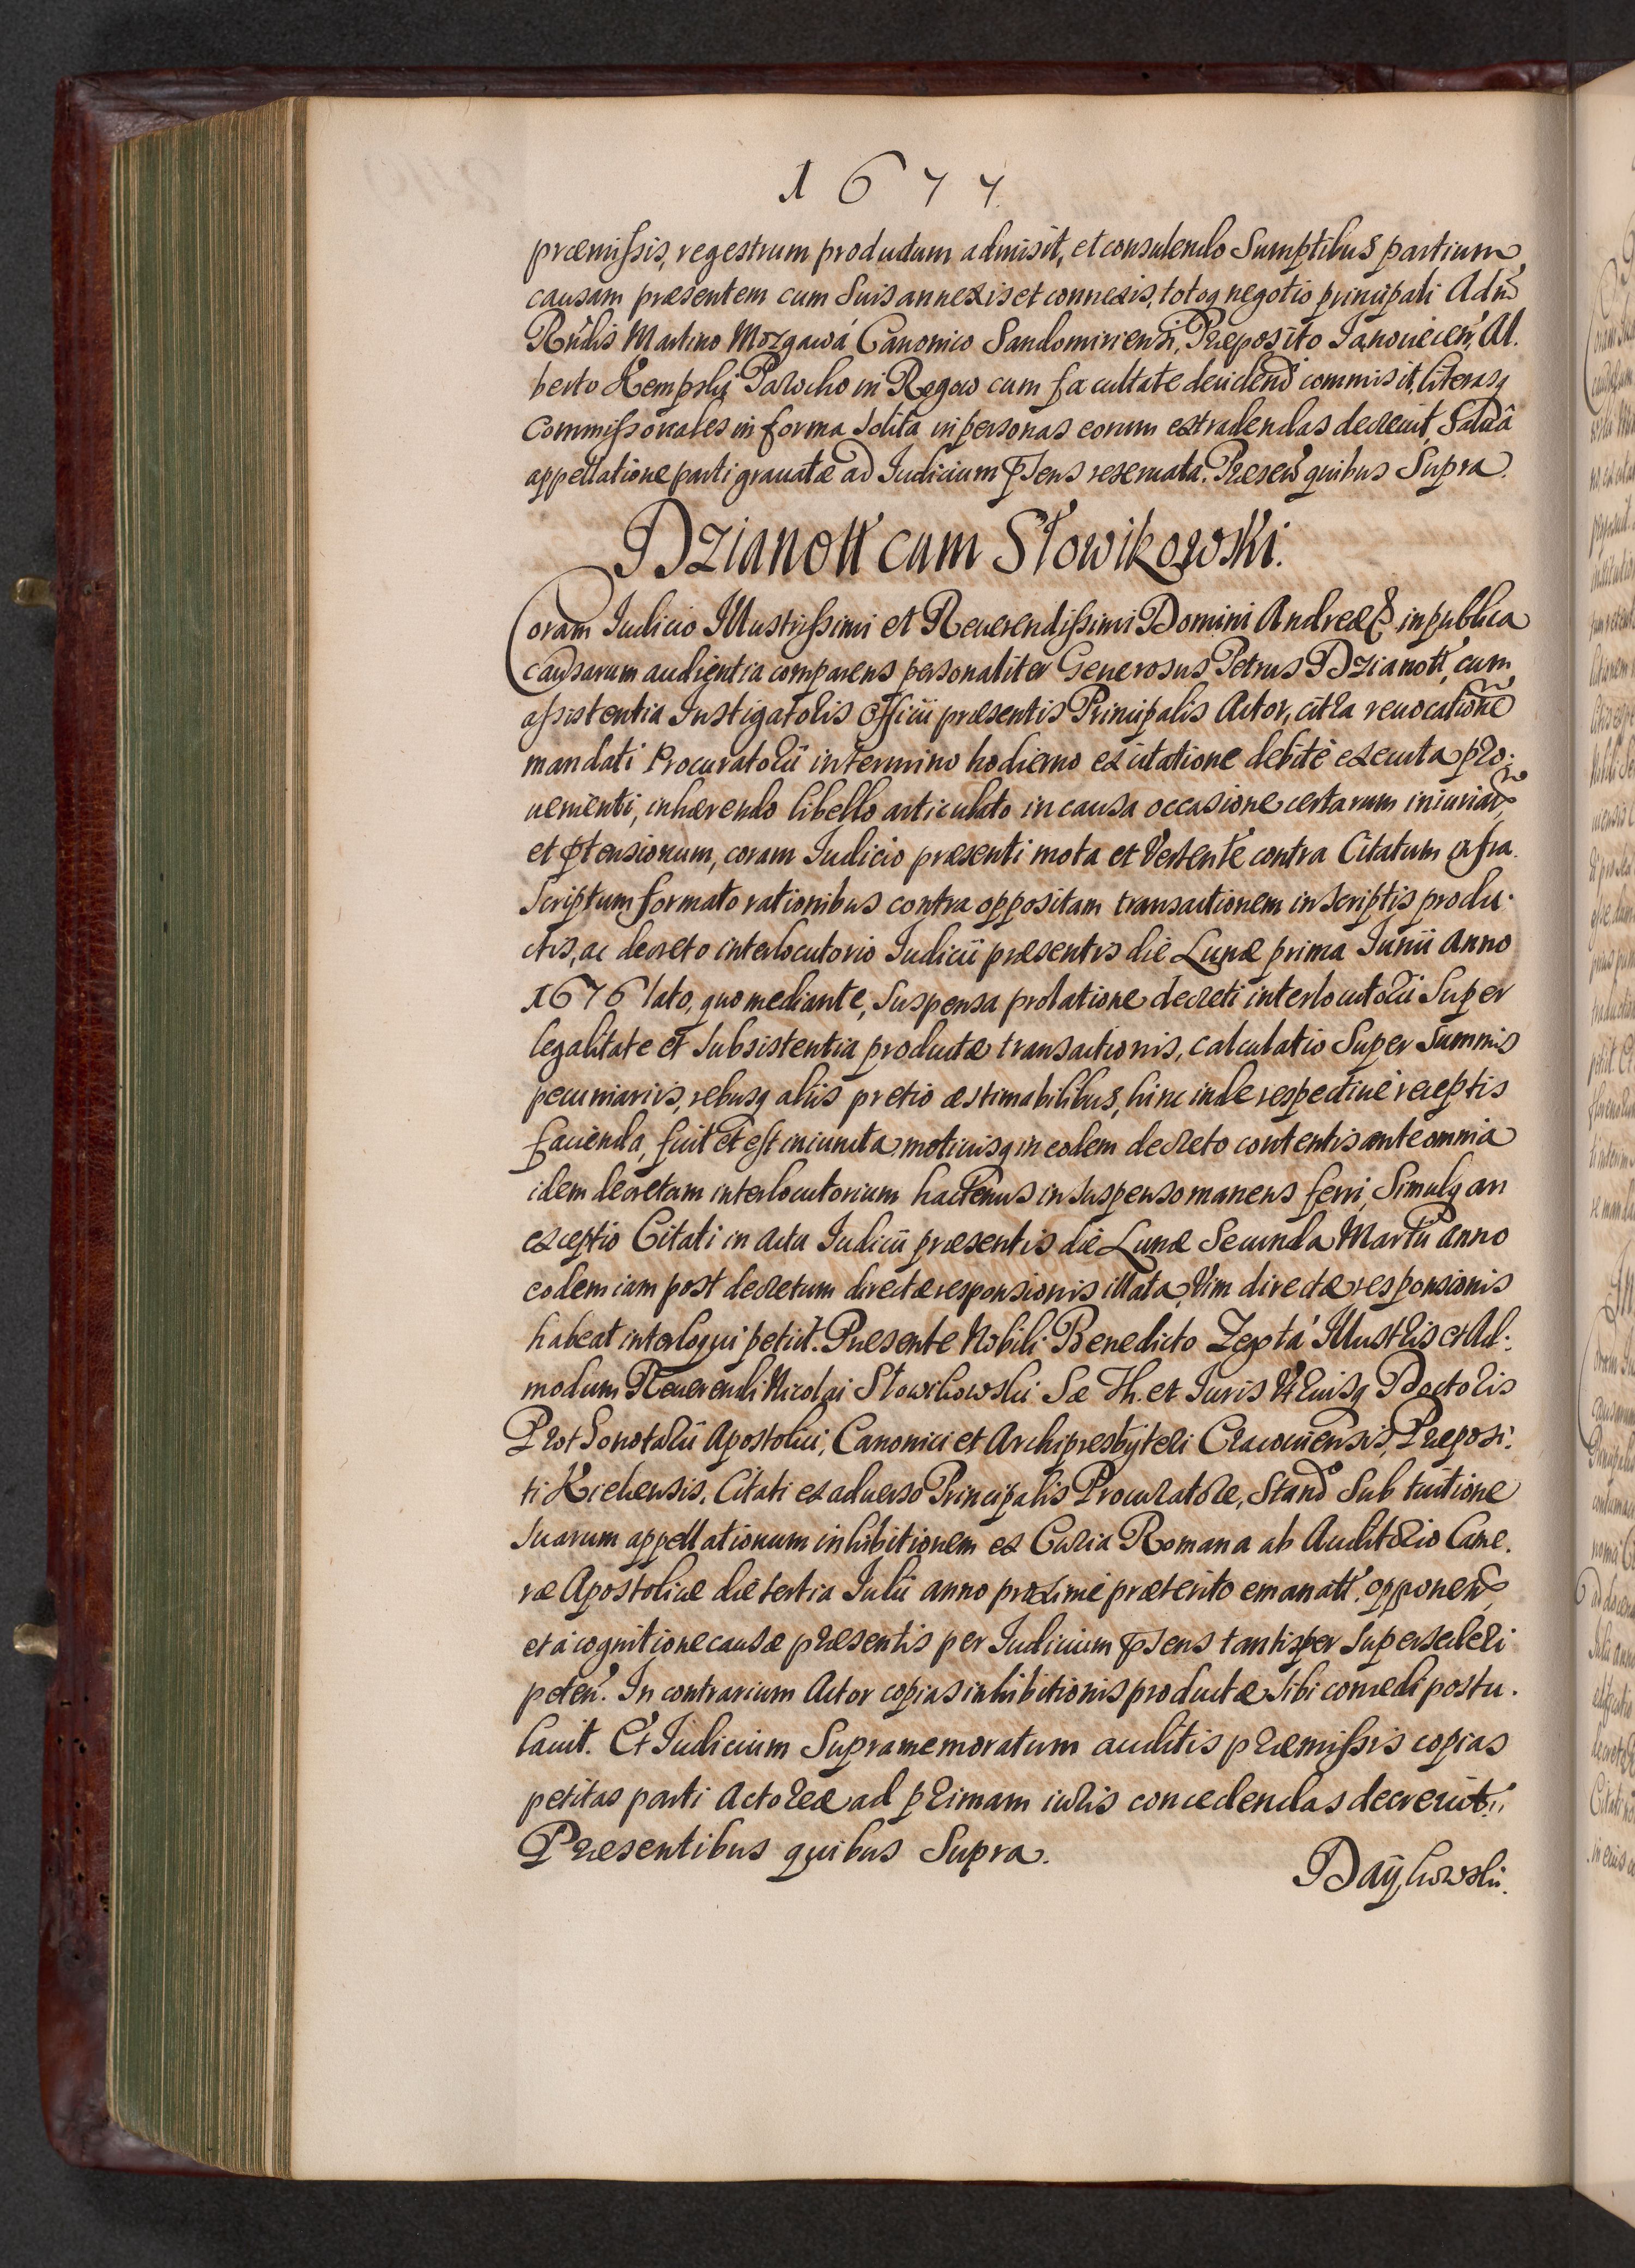 1677
præmissis, regestrum productum admisit, et consulendo Sumptibus partium
causam præsentem cum Suis annexis et connexis, totoq negotio principali Adm
Rńdis Martino Mozgawá Canonico Sandomiriensi, Præposito Janouiecen, Al.
berto Kempski Parocho in Regow cum facultate deciden commisit, literasq
Commissoriales in forma Solita in personas eorum extradendas decreuit, Saluâ
appellatione parti grauatæ ad Iudicium pṡens reseruata. Præsen quibus Supra.
Dzianott cum Słowikowski.
Coram Iudicio Illustrissimi et Reuerendissimi Domini Andreæ in publica
causarum audientia comparens personaliter Generosus Petrus Dzianott, cum
assistentia Instigatoris Officii præsentis Principalis Actor, citra reuocatione
mandati Procuratorii in termino hodierno ex citatione debitè executa pro:
uenienti, inhærendo libello articulato in causa occasione certarum iniuriar,
et ptensionum, coram Iudicio præsenti mota et Vertente contra Citatum infra
Scriptum formato rationibus contra oppositam transactionem in Scriptis produ.
ctis, ac decreto interlocutorio Iudicii præsentis die Lunæ prima Iunii Anno
1676 lato, quo mediante, Suspensa prolatione decreti interlocutorii Super
legalitate et Subsistentia productæ transactionis, calculatio Super Summis
pecuniariis, rebusq aliis pretio æstimabilibus, hinc inde respectiuè receptis
facienda, fuit et est iniuncta motiuisq in eodem decreto contentis ante omnia
idem decretum interlocutorium hactenus in Suspenso manens ferri, Simulq an
exceptio Citati in acta Iudicii præsentis die Lunæ Secunda Martii anno
eodem iam post decretum directæ responsionis illata, Vim directæ responsionis
habeat interloqui petiit. Præsente Nobili Benedicto Zexta Illustris et Ad.
modum Reuerendi Nicolai Słowikowski Sæ Th. et Iuris Vtriusq Doctoris
Prothonotarii Apostolici, Canonici et Archipresbyteri Cracouiensis, Præposi.
ti Kielcensis, Citati ex aduerso Principalis Procuratore, Stand Sub tuitione
Suarum appellationum inhibitionem ex Curia Romana ab Auditorio Came.
ræ Apostolicæ die tertia Iulii anno proximè præterito emanatt. opponen,
et à cognitione causæ præsentis per Iudicium pṡens tantisper Supersederi
peten. In contrarium Actor copias inhibitionis productæ Sibi concedi postu.
lauit. Et Iudicium Supramemoratum auditis præmissis copias
petitas parti Actoreæ ad primam iuris concedendas decreuit.
Præsentibus quibus Supra.
Daÿkowski.